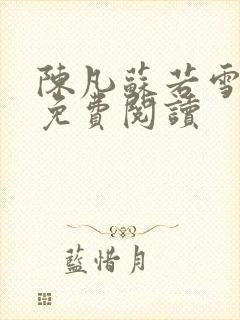 陳凡蘇若雪
免費閱讀
藍惜月